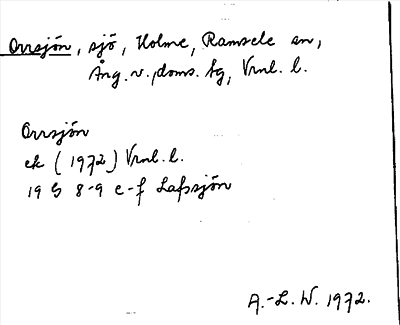 Orrsjön, sjö, Holme, Ramsele sn,
Ång. v. doms. tg, Vrnl. l.
Orrsjön
ek (1972) Vrnl. l.
19 G 8-9 e-f Lafssjön
A.-L. W. 1972.